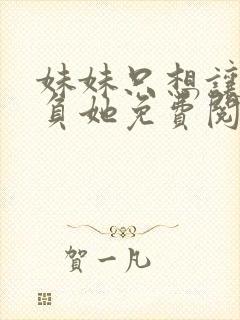 妹妹只想讓
負她免費閱
賀一凡